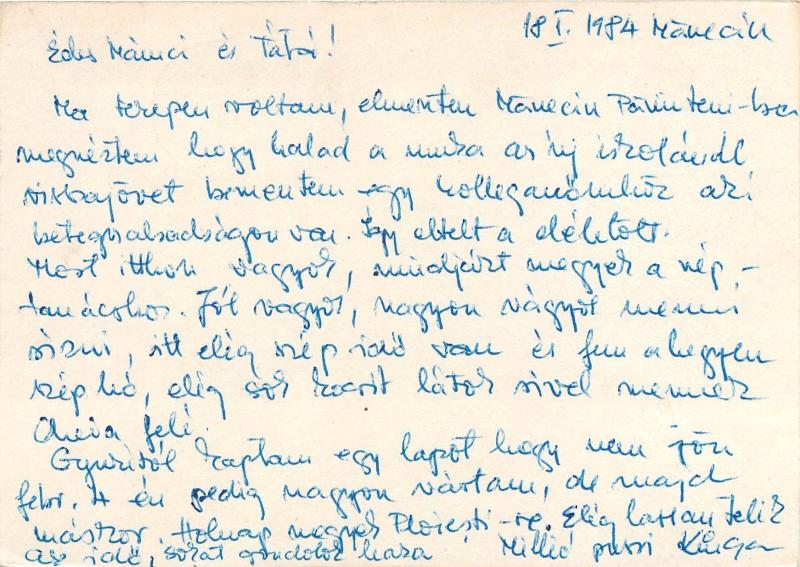 18 I. 1984 Măneciu
Édes Mámci és Tátá!
Ma terepen voltam, elmentem Măneciu Pămînteni-ba
megnéztem hogy halad a munka az új iskolánál
visszajövet bementem egy kolleganőmhöz aki
betegszabadságon van. Így eltelt a délelőtt.
Most itthon vagyok, mindjárt megyek a nép-
tanácshoz. Jól vagyok, nagyon vágyok menni
sízni, itt elég szép idő van és fenn a hegyen
szép hó, elég sok kocsit látok sível mennek
Cheia felé.
Gyuritól kaptam egy lapot hogy nem jön
febr. 4 én pedig nagyon vártam, de majd
máskor. Holnap megyek Ploiești-re. Elég lassan telik
az idő, sokat gondolok haza. Millió puszi Kinga